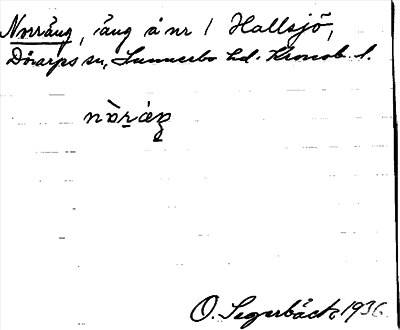 Norräng, äng å nr 1 Hallsjö,
Dörarps sn, Sunnerbo hd. Kronob. l.
O. Segerbäck 1936